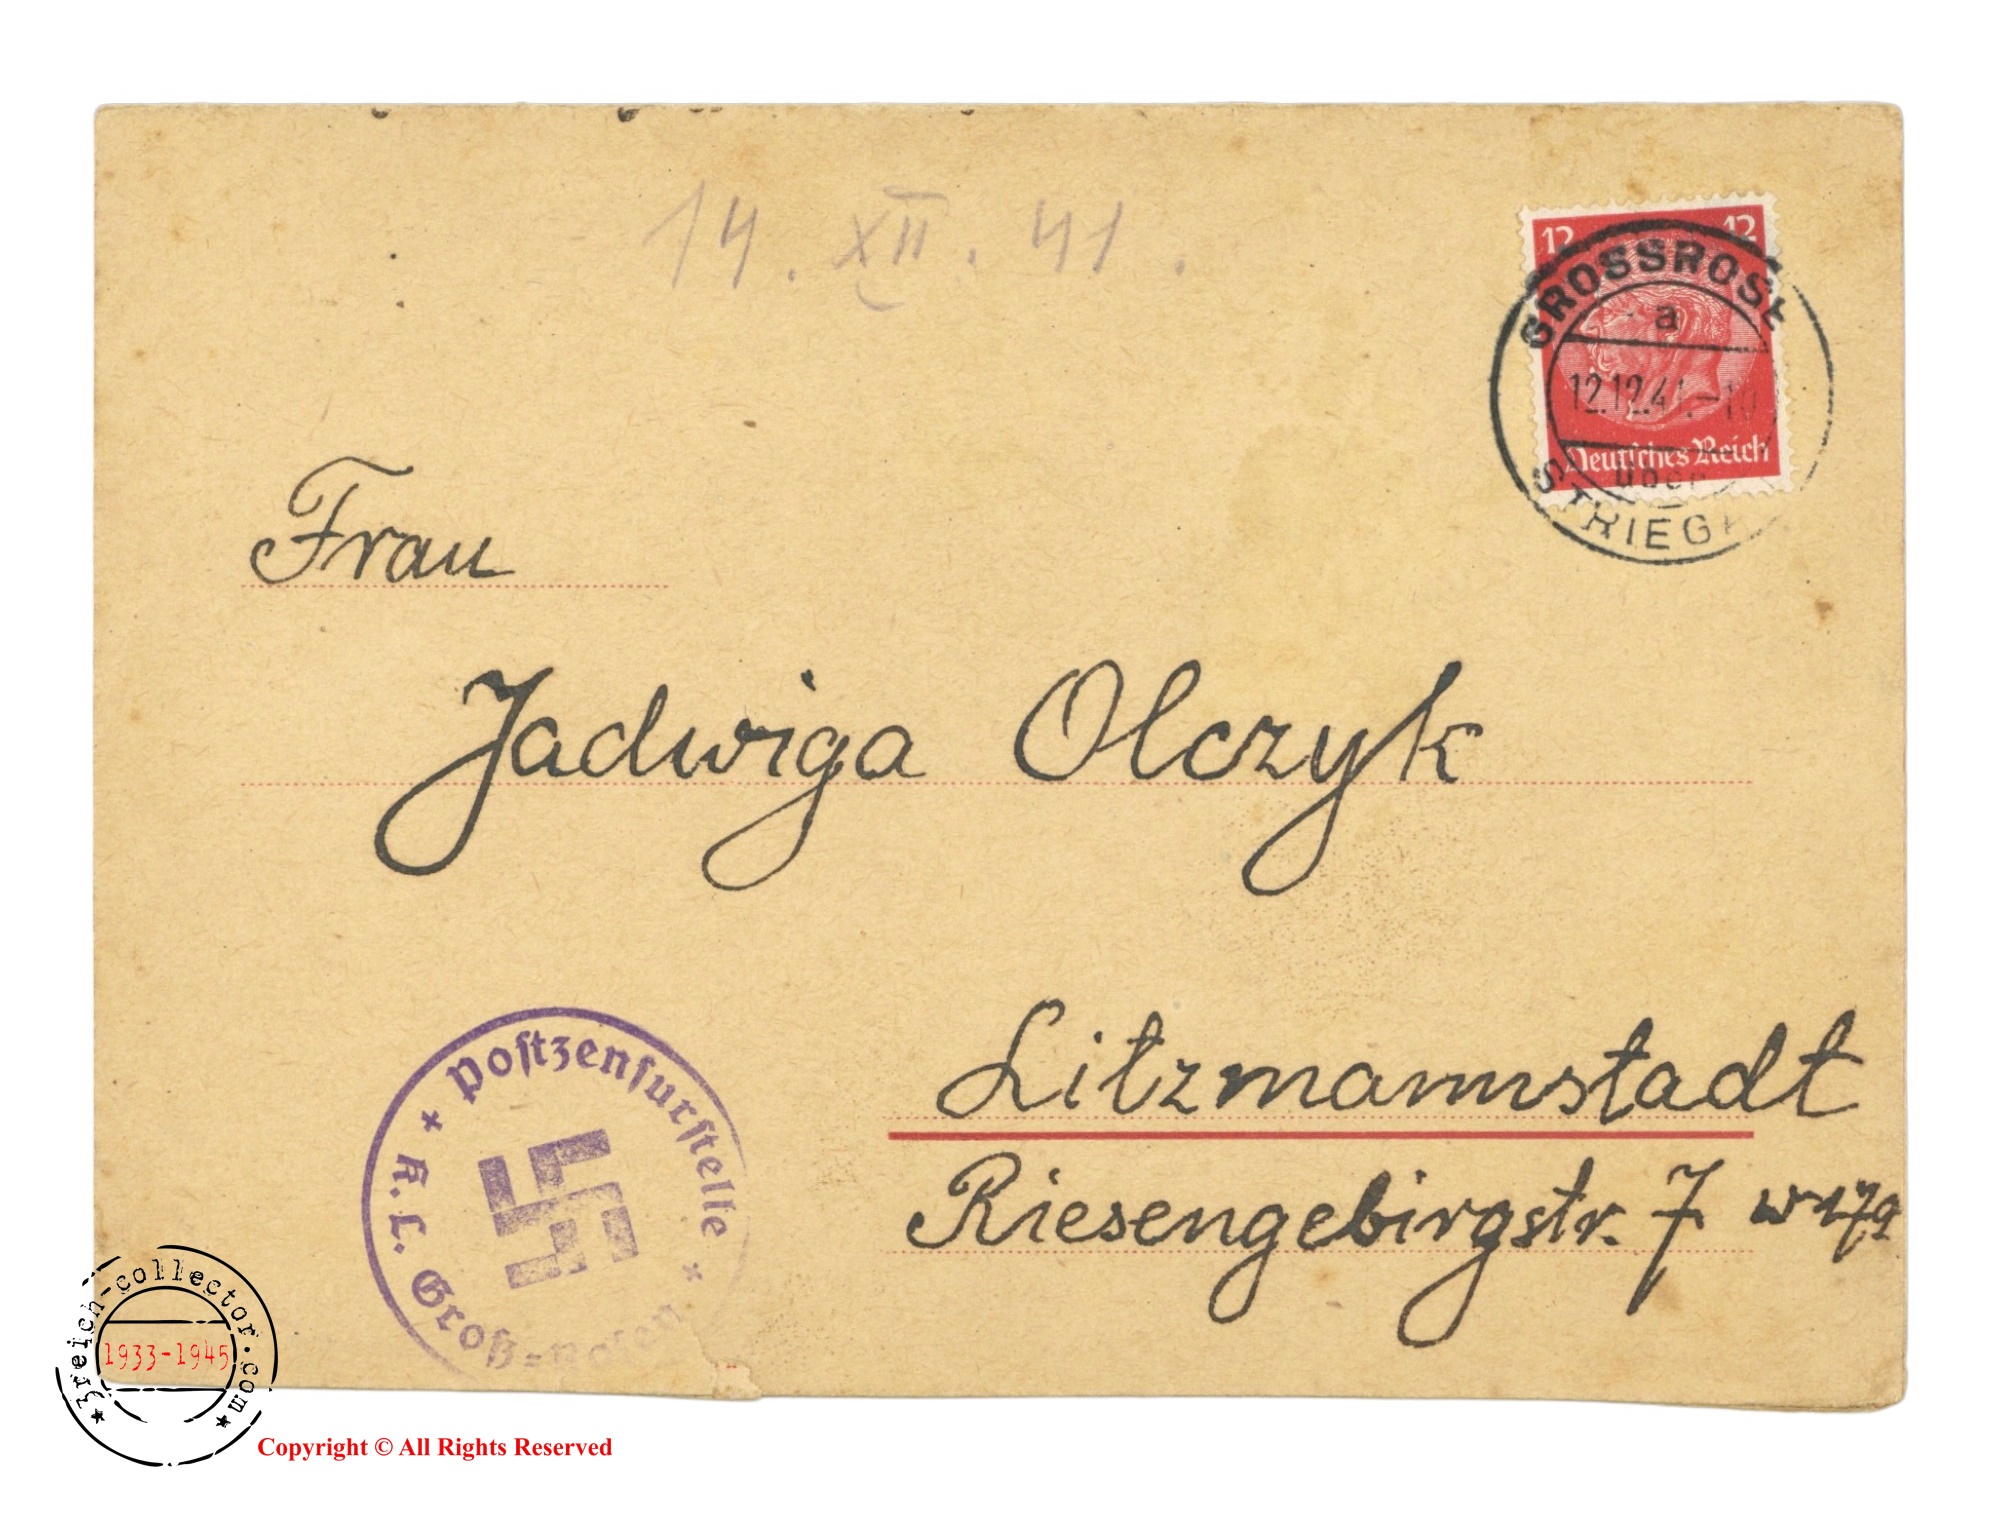 14. XII. 41.
12 12
GROSSROSE
a
12.12.41.-10
über
STRIEG
Deutsches Reich
Frau
Jadwiga Olczyk
Litzmannstadt
Riesengebirgstr. 7 w 179
* Postzensurstelle *
K.L. Groß-Rosen
3reich-collector.com
1933-1945
Copyright © All Rights Reserved